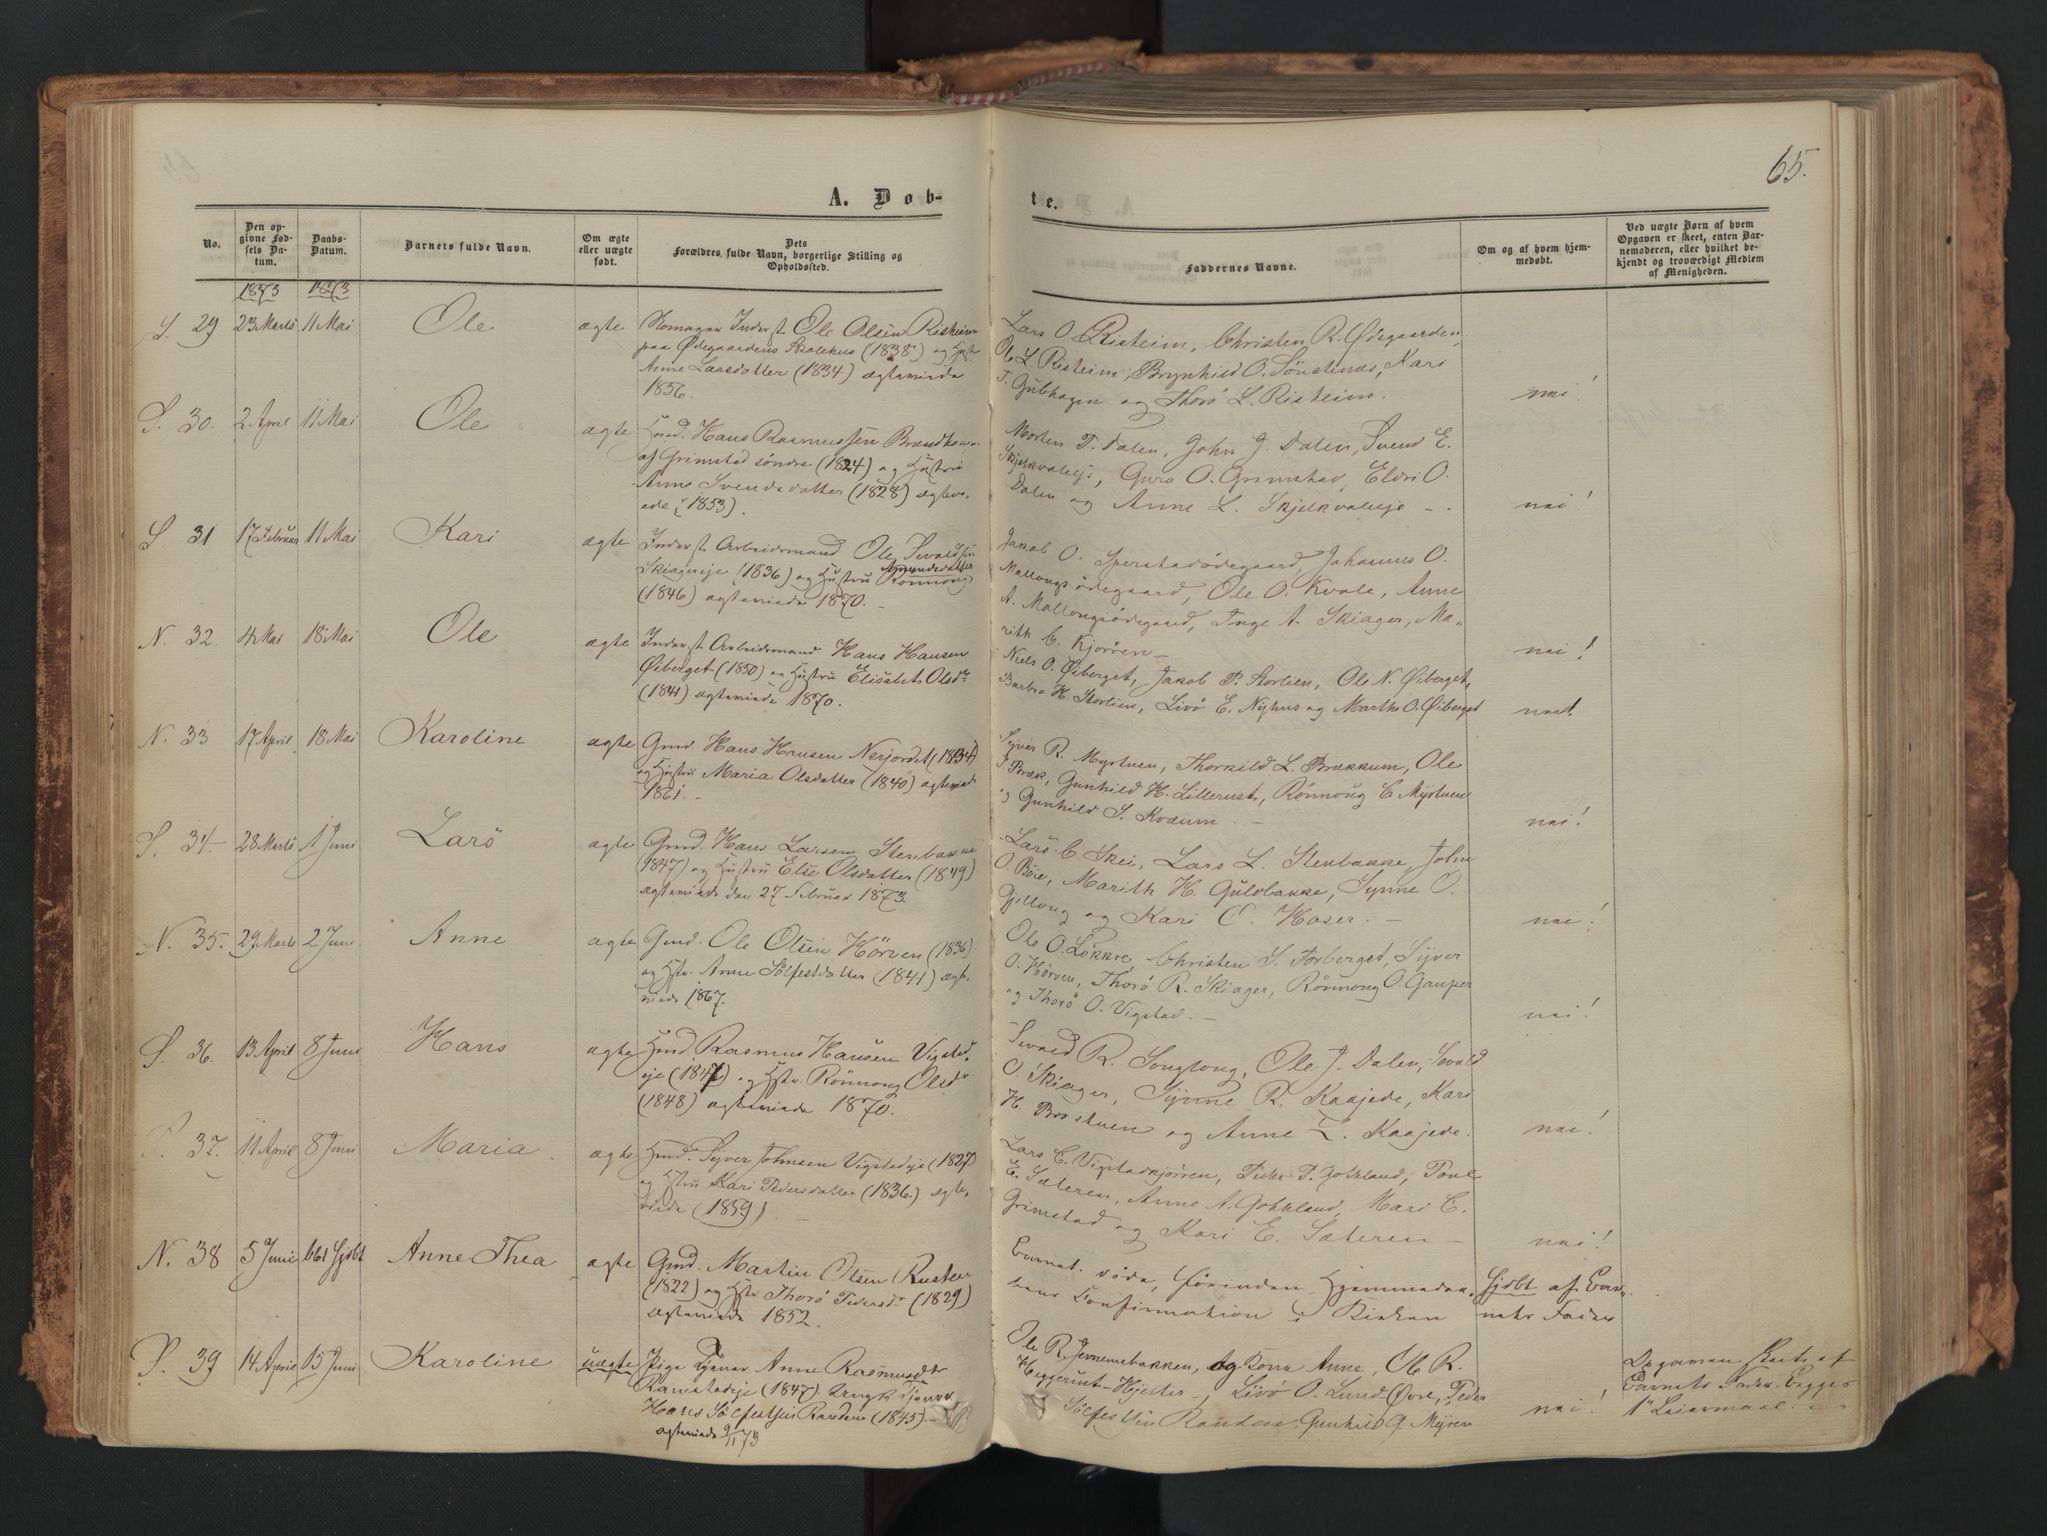 65.
A. Døb-
te.
No.
Den op-
givne Fød-
sels Da-
tum.
Daabs-
Datum.
Barnets fulde Navn.
Om ægte
eller uægte
født.
Dets
Forældres fulde Navn, borgerlige Stilling og
Opholdssted.
Faddernes Navne.
Om og af hvem hjem-
medøbt.
Ved uægte Børn af hvem
Opgaven er skeet, enten Bar-
nemoderen, eller hvilket be-
kjendt og troværdigt Medlem
af Menigheden.
1873 1873
S. 29 23 Marts 11 Mai Ole ægte
Skomager Inderst Ole Olsen Risheim
paa Ødegaardens Skolehus (1838) og Hstr
Anne Larsdatter (1834) ægteviede
1856.
Lars O. Risheim, Christen R. Ødegaarden,
Ole L. Risheim, Brynhild O. Sønstenæs, Kari
T. Gulhagen og Thorø L. Risheim.
nei!
S. 30. 2 April 11 Mai Ole ægte
Hmd. Hans Rasmussen
af Grimstad søndre (1824) og Hustru
Anne Svendsdatter (1828) ægtevi-
ede (1853).
Morten T. Dalen, John J. Dalen, Svend E.
Skjelkvaleje, Guro O. Grimstad, Eldri O.
Dalen og Anne L. Skjelkvaleje -.
nei!
S. 31 17 Februar 11 Mai Kari ægte
Inderst Arbeidsmand Ole Sevaldsen
Skiagereje (1836) og Hustru Rønnoug Amundsdatter
(1846) ægteviede 1870. -
Jakob O. Sperstadødegaard, Johannes O.
Mallongsødegaard, Ole O. Kvale, Anne
A. Mallongsødegaard, Inge A. Skiager, Ma-
rith C. Kjørren -
nei!
N. 32. 4 Mai 18 Mai Ole ægte
Inderst Arbeidsmand Hans Hansen
Øiberget (1850) og Hustru Elisabet Olsdr
(1841) ægteviede 1870.
Niels O. Øiberget, Jakob P. Storlien, Ole N. Øiberget,
Barbro H. Storlien, Livø E. Nyhus og Marthe O. Øiberget
nei!
N. 33 17 April 18 Mai Karoline ægte
Gmd. Hans Hansen Nerjordet (1834)
og Hustru Maria Olsdatter (1840) ægteviede
1861. -
Syver R. Myrtuen, Thorkild L. Brækkum, Ole
Bræk, Gunhild H. Lillerust, Rønnoug C. Mystuen
og Gunhild S. Kvarum. -
nei!
S. 34 28 Marts 1 Juni Lars ægte
Gmd. Hans Larsen Stenbakke
(1847) og Hustru Else Olsdatter (1849)
ægteviede den 27 Februar 1873.
Lars C. Skei, Lars L. Stenbakke, John
O. Bøie, Marith H. Gulbakke, Synne O.
Gjellong og Kari E. Haser. -
nei!
N. 35. 29 Marts 2 Juni Anne ægte
Gmd. Ole Olsen Hørven (1836)
og Hstr. Anne Sølfestdatter (1841) ægte-
viede 1867.
Ole O. Løkkre, Christen S. Forberget, Syver
O. Hørven, Thorø R. Skiager, Rønnoug O. Gauper
og Thorø O. Vigstad. -
nei!
S. 36. 13 April 8 Juni Hans ægte
Hmd. Rasmus Hansen Vigstad-
eje (1847) og Hstr. Rønnoug Olsdr
(1848) ægteviede 1870.
Sevald R. Songlong, Ole J. Dalen, Sevald
O. Skiager, Synne R. Kaajede, Kari
H. Brostuen og Anne L. Kaajede.
nei!
S. 37. 11 April 8 Juni Maria ægte
Hmd. Syver Johnsen Vigstadeje (1827)
og Hstru Kari Pedersdatter (1836.) ægte-
viede (1859). -
Lars C. Vigstadkjørren, Peder P. Gotkland, Poul
E. Sæteren, Anne A. Gotkland, Mari C.
Grimstad og Kari E. Sæteren -
nei!
N. 38 5 Junie Hjdbt Anne Thea ægte
Gmd. Martin Olsen Rusten
(1822) og Hstr Thorø Pedersdr (1829)
ægteviede 1852.
Barnet døde, førend Hjemmedaa-
bens Confirmation i Kirken
Hjdbt af Bar-
nets Fader
S. 39 14 April 15 Juni Karoline uægte
Pige Tjener Anne Rasmusdtr
Ramstadeje (1847). Ungk. Tjener
Hans Sølfestsen Randen (1845). -
ægteviede 9/11 73
Ole R. Jernnesbakken, og Kone Anne, Ole R.
Heggerust-Hjeltes, Livø O. Lund Øvre, Peder
Sølfestsen Randen, Gunhild G. Myren
nei.
Opgaven skeet af
Barnets Fader. Begges
1e Leiermaal.